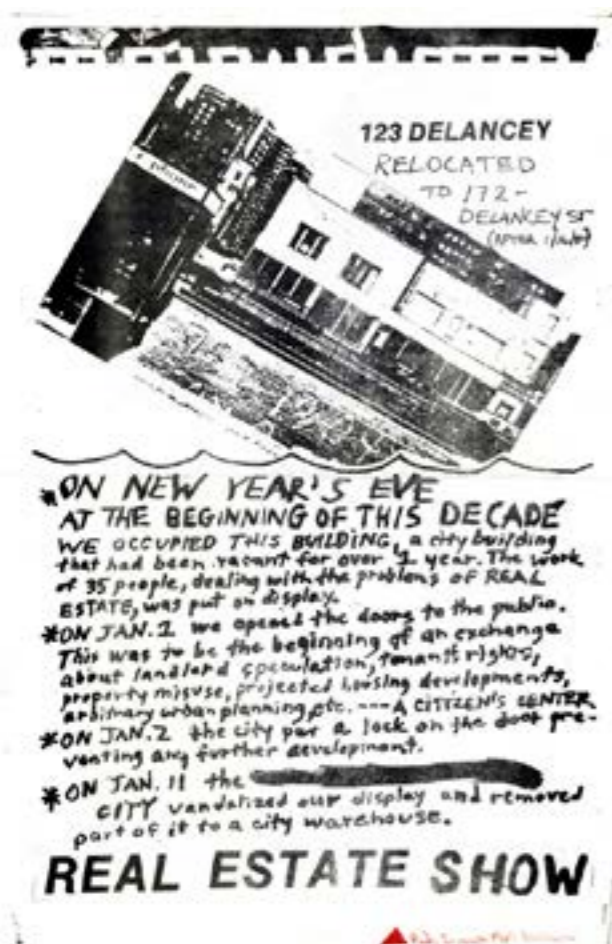 123 DELANCEY
RELOCATED
TO 172-
DELANCEY ST
*ON NEW YEAR'S EVE
AT THE BEGINNING OF THIS DECADE
WE OCCUPIED THIS BUILDING, a city building
that had been vacant for over 1 year. The work
of 35 people, dealing with the problems of REAL
ESTATE, was put on display.
*ON JAN. 1 we opened the doors to the public.
This was to be the beginning of an exchange
about landlord speculation, tenants rights,
property misuse, projected housing developments,
arbitrary urban planning, etc. --- A CITIZEN'S CENTER
*ON JAN. 2 the city put a lock on the door pre-
venting any further development.
*ON JAN. 11 the
CITY vandalized our display and removed
part of it to a city warehouse.
REAL ESTATE SHOW